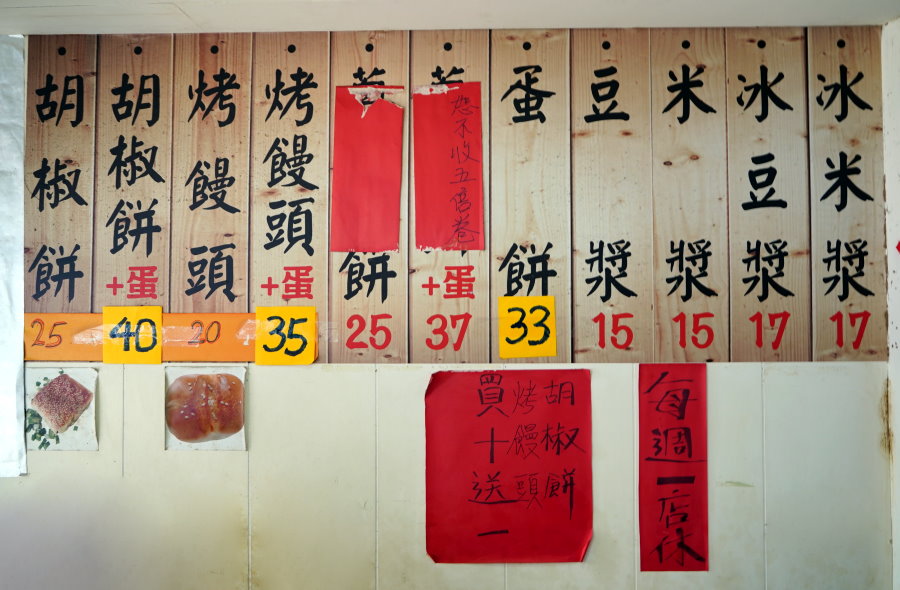 胡椒餅
25
胡椒餅+蛋
40
烤饅頭
20
烤饅頭+蛋
35
餅
25
恕不收五倍卷
+蛋
37
蛋餅
33
豆漿
15
米漿
15
冰豆漿
17
冰米漿
17
胡椒餅
烤饅頭
買十送一
每週一店休